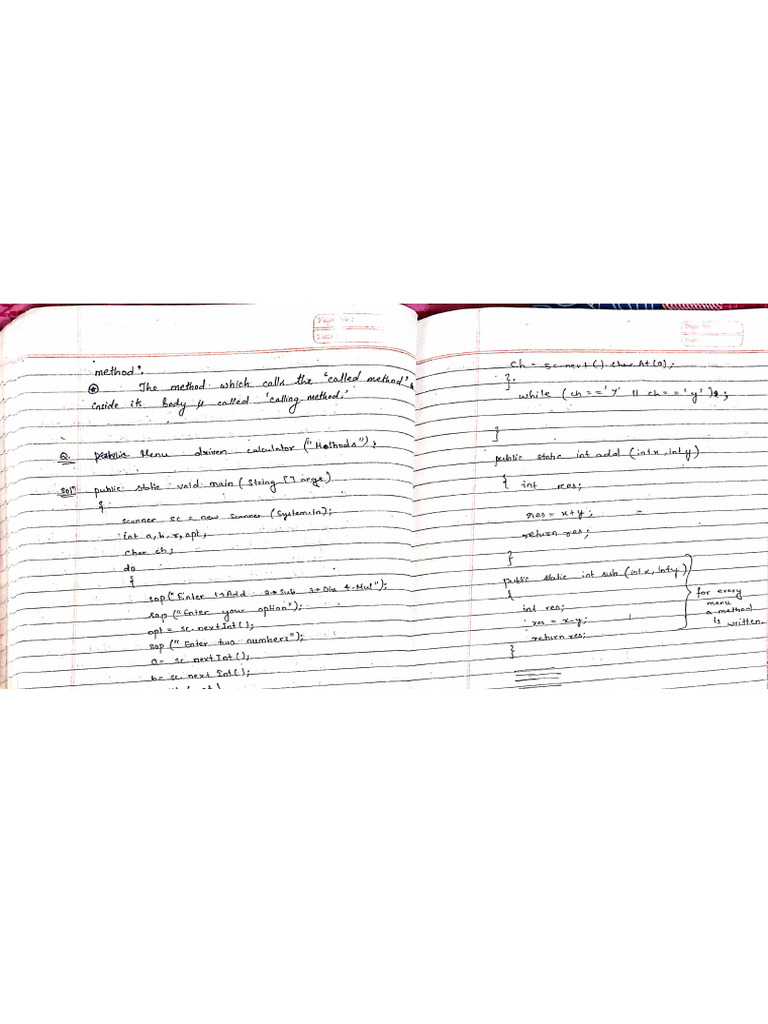 method".
The method which calls the 'called method'
inside its Body is called 'calling method.'
Q. Menu driven calculator ("Methods");
Solⁿ public static void main (String [] args)
{
scanner sc = new scanner (System.in);
int a, b, r, opt;
char ch;
do
{
sop("Enter 1→Add 2→Sub 3→Div 4→Mul");
sop ("Enter your option");
opt = sc.nextInt();
sop ("Enter two numbers");
a = sc.nextInt();
b = sc.next Int();
Page No:
Date
ch = sc.next().charAt(0);
}
while (ch=='Y' || ch=='y');
}
public static int add (int x, int y)
{ int res;
res = x+y;
return res;
}
public static int sub (int x, int y)
{
int res;
res = x-y;
return res;
}
for every
menu
a method
is written.
Page No: